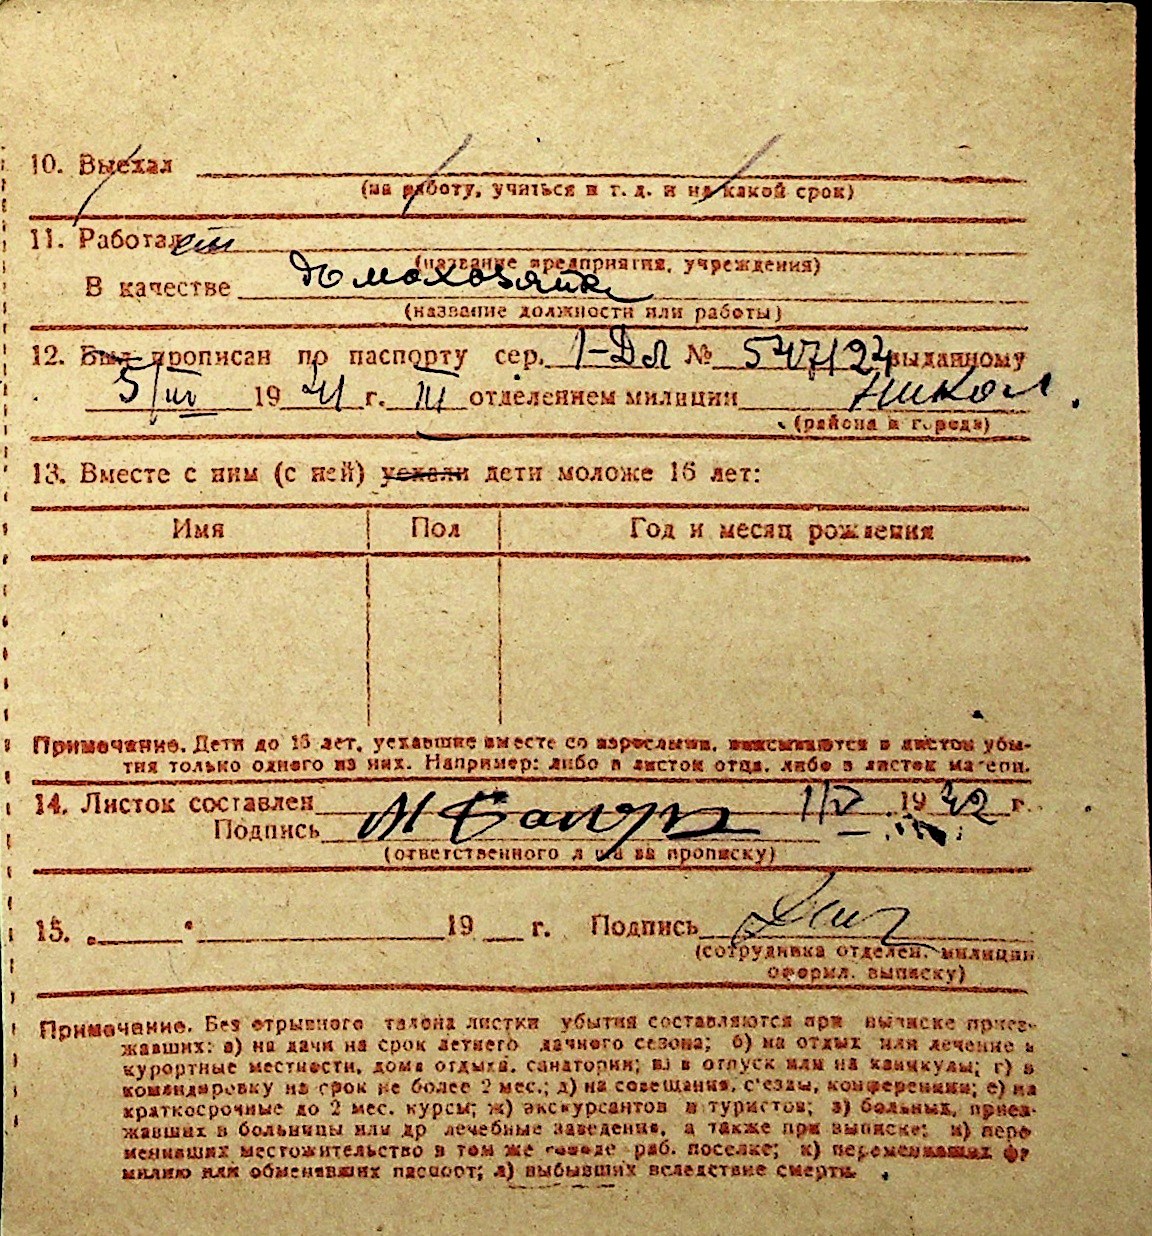 10. Выехал
(на работу, учиться и т. д. и на какой срок)
11. Работает
(название предприятия, учреждения)
домохозяйка
В качестве
(название должности или работы)
12. Был прописан по паспорту сер. 1-Дл № выданному
5/III 1941 г. III отделением милиции Никол.
(района и города)
13. Вместе с ним (с ней) уехали дети моложе 16 лет:
Имя Пол Год и месяц рождения
Примечание. Дети до 16 лет, уехавшие вместе со взрослыми, вписываются в листок убы-
тия только одного из них. Например: либо в листок отца, либо в листок матери.
14. Листок составлен 1/IV 1942 г.
Подпись
(ответственного лица за прописку)
15. „ “ 19 г. Подпись
(сотрудника отделен. милиции
оформл. выписку)
Примечание. Без отрывного талона листки убытия составляются при выписке приез-
жавших: а) на дачи на срок летнего дачного сезона; б) на отдых или лечение в
курортные местности, дома отдыха, санатории; в) в отпуск или на каникулы; г) в
командировку на срок не более 2 мес.; д) на совещания, с'езды, конференции; е) на
краткосрочные до 2 мес. курсы; ж) экскурсантов и туристов; з) больных, приез-
жавших в больницы или др лечебные заведения, а также при выписке: и) пере
менивших местожительство в том же городе раб. поселке; к) переменивших фа
милию или обменявших паспорт; л) выбывших вследствие смерти.